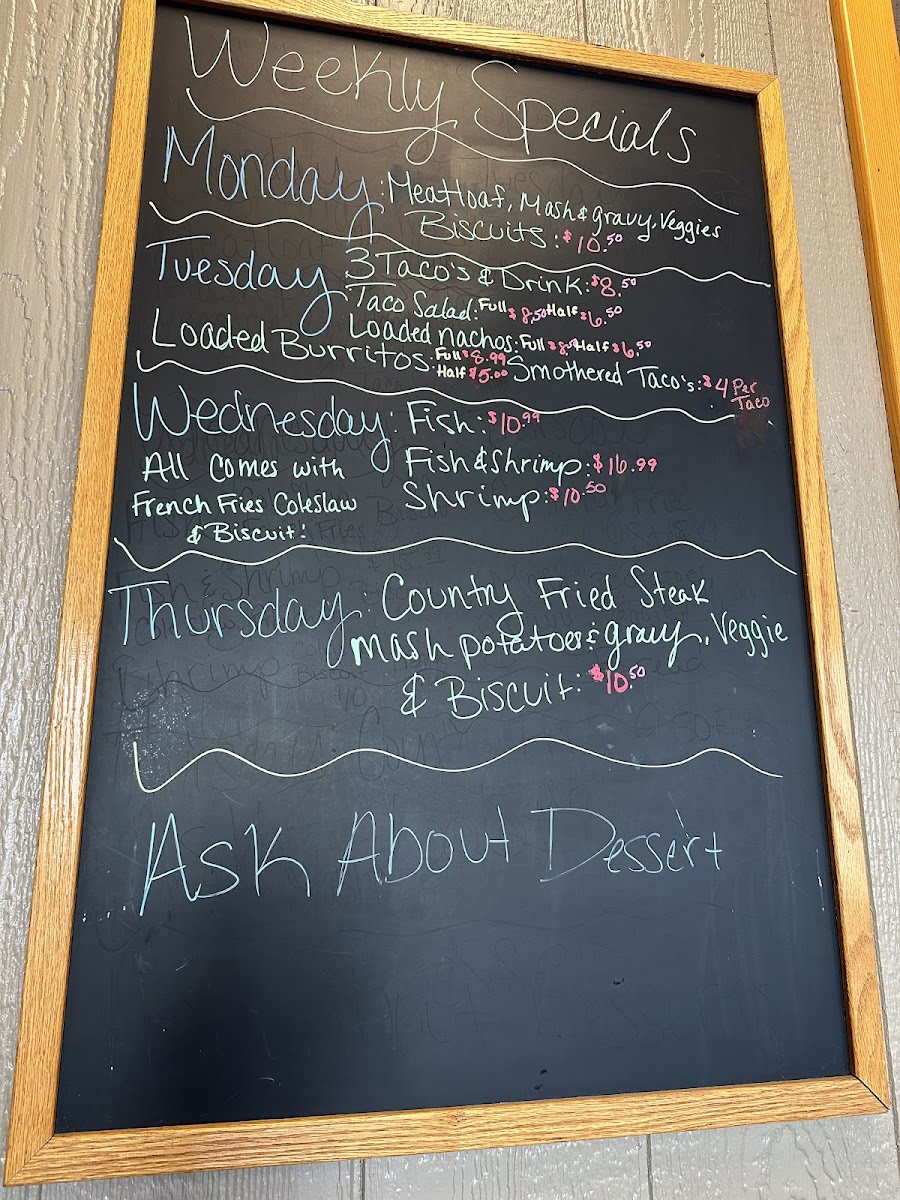 Weekly Specials
Monday: Meatloaf, Mash & gravy, Veggies
Biscuits: $10.50
Tuesday 3 Taco's & Drink: $8.50
Taco Salad: Full $8.50 Half $6.50
Loaded nachos: Full $8.50 Half $6.50
Loaded Burritos: Full $8.99 Half $5.00 Smothered Taco's: $4 Per Taco
Wednesday: Fish: $10.99
All Comes with Fish & Shrimp: $16.99
French Fries Coleslaw Shrimp: $10.50
& Biscuit!
Thursday: Country Fried Steak
mash potatoes & gravy, Veggie
& Biscuit: $10.50
Ask About Dessert